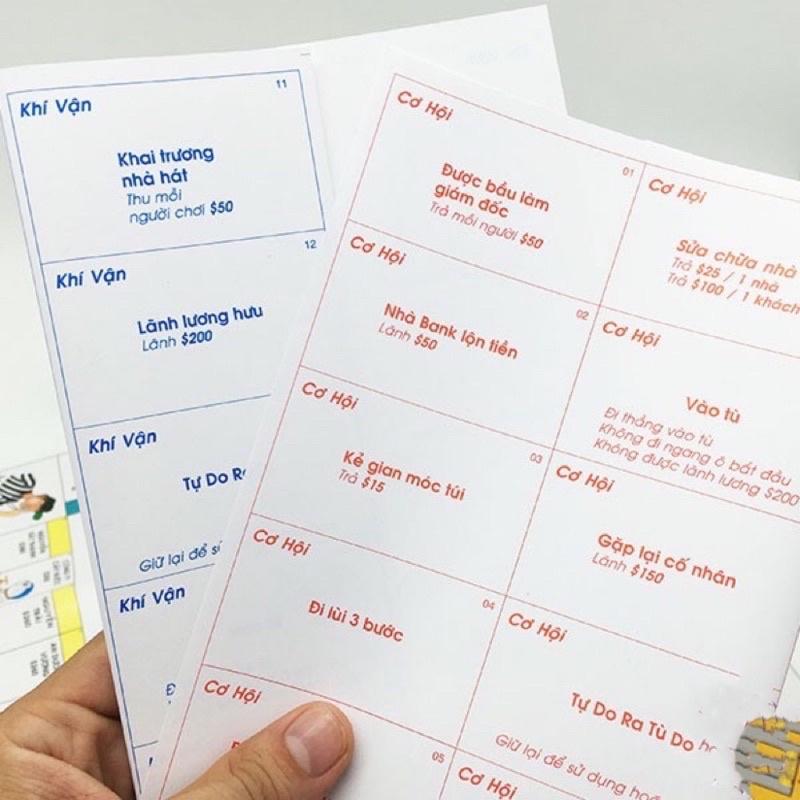 11
Khí Vận
Khai trương
nhà hát
Thu mỗi
người chơi $50
12
Khí Vận
Lãnh lương hưu
Lãnh $200
Khí Vận
Tự Do
Giữ lại để
Khí Vận
01
Cơ Hội
Được bầu làm
giám đốc
Trả mỗi người $50
Cơ Hội
Sửa chữa nhà
Trả $25 / 1 nhà
Trả $100 / 1 khách
02
Cơ Hội
Nhà Bank lộn tiền
Lãnh $50
Cơ Hội
Vào tù
Đi thẳng vào tù
Không đi ngang ô bắt đầu
Không được lãnh lương $200
03
Cơ Hội
Kẻ gian móc túi
Trả $15
Cơ Hội
Gặp lại cố nhân
Lãnh $150
04
Cơ Hội
Đi lùi 3 bước
Cơ Hội
Tự Do Ra Tù Do
Giữ lại để sử dụng
05
Cơ Hội
Cơ Hội